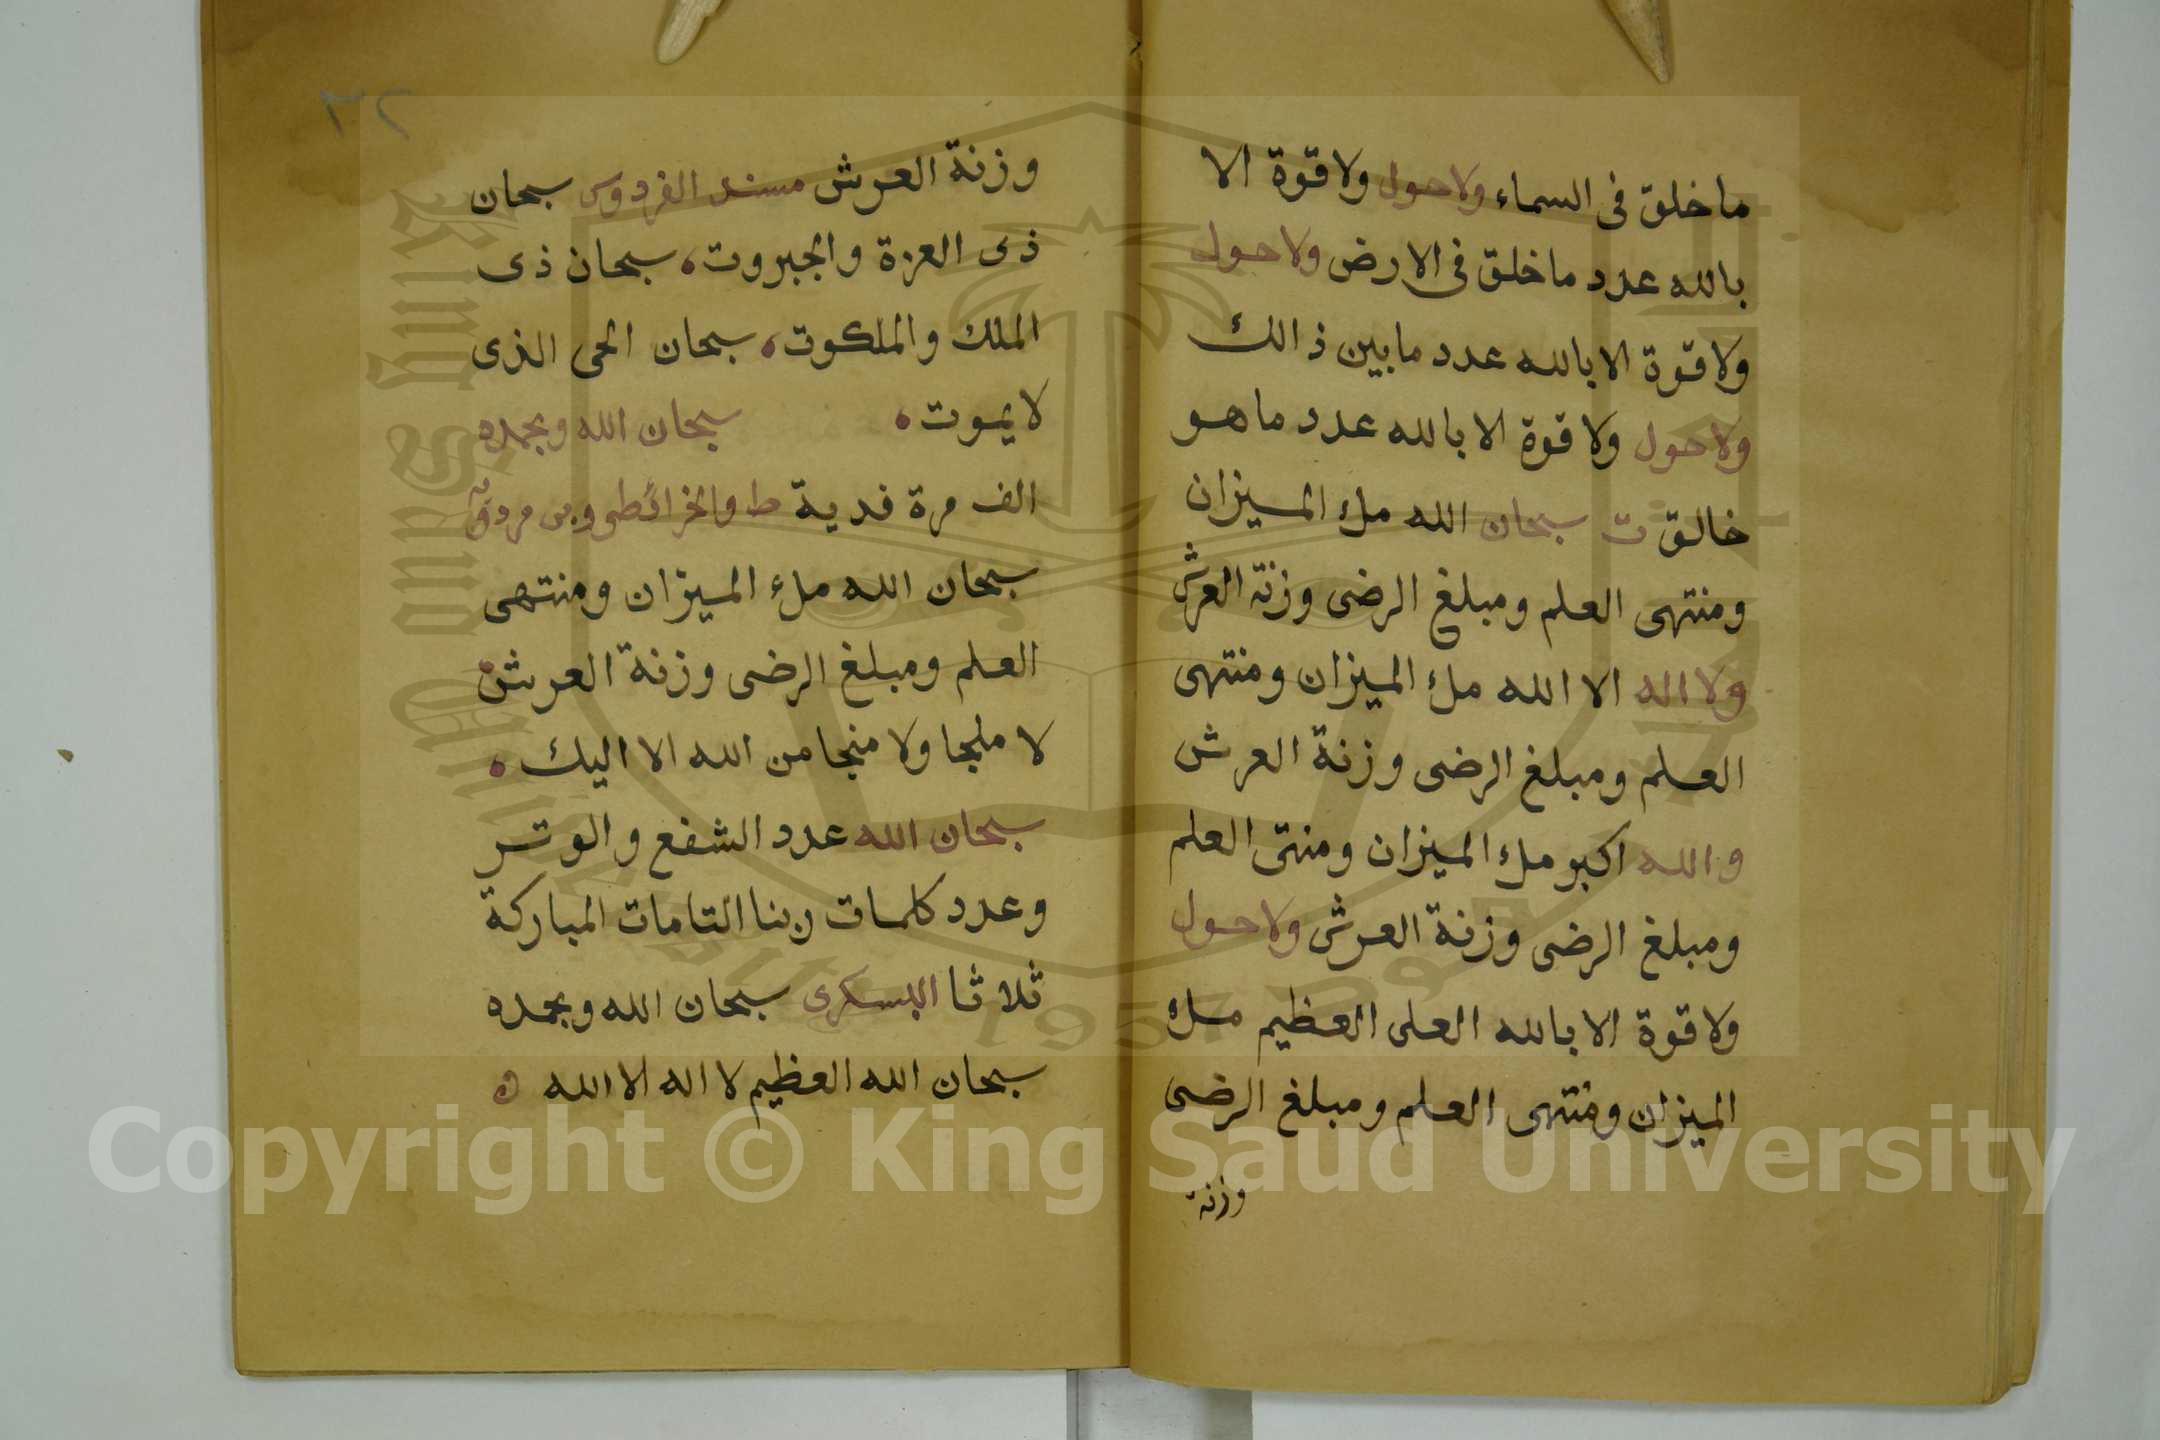 ما خلق فى السماء ولاحول ولاقوة الا
بالله عدد ما خلق فى الارض ولاحول
ولاقوة الا بالله عدد ما بين ذالك
ولاحول ولا قوة الا بالله عدد ما هو
خالق ت سبحان الله ملء الميزان
ومنتهى العلم ومبلغ الرضى وزنة العرش
ولا اله الا الله ملء الميزان ومنتهى
العلم ومبلغ الرضى وزنة العرش
والله اكبر ملء الميزان ومنتى العلم
ومبلغ الرضى وزنة العرش ولاحول
ولاقوة الا بالله العلى العظيم ملء
الميزان ومنتهى العلم ومبلغ الرضى
وزنة
٣٢
وزنة العرش مسند الفردوس سبحان
ذى العزة والجبروت، سبحان ذى
الملك والملكوت، سبحان الحى الذى
لايموت، سبحان الله وبحمده
الف مرة فدية ط والخرائطى وبن مردويه
سبحان الله ملء الميزان ومنتهى
العلم ومبلغ الرضى وزنة العرش
لا ملجا ولا منجا من الله الا اليك،
سبحان الله عدد الشفع والوتر
وعدد كلمات ربنا التامات المباركة
ثلاثا البسكرى سبحان الله وبحمده
سبحان الله العظيم لا اله الا الله ه
King Saud University
1957
Copyright © King Saud University